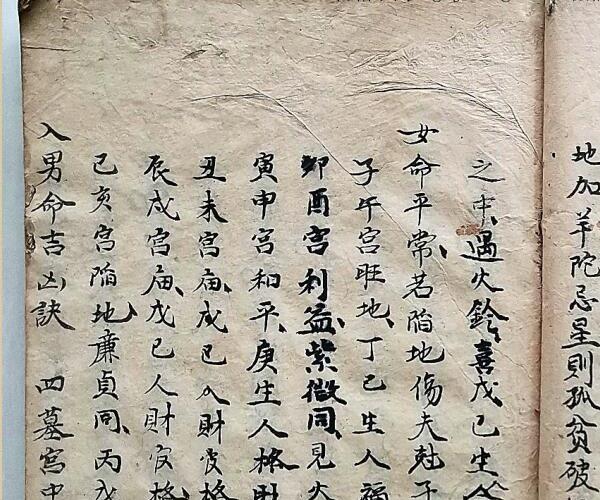 地加羊陀忌星則孤貧破
之中遇火鈴喜戊己生人
女命平常若陷地傷夫尅子
子午宮旺地丁己生人福
卯酉宮利益紫微同見火
寅申宮和平庚生人格財
丑未宮庙戊己人財官格
辰戌宮庙戊己人財官格
己亥宮陷地廉貞同丙戊
入男命吉凶訣 四墓宮中